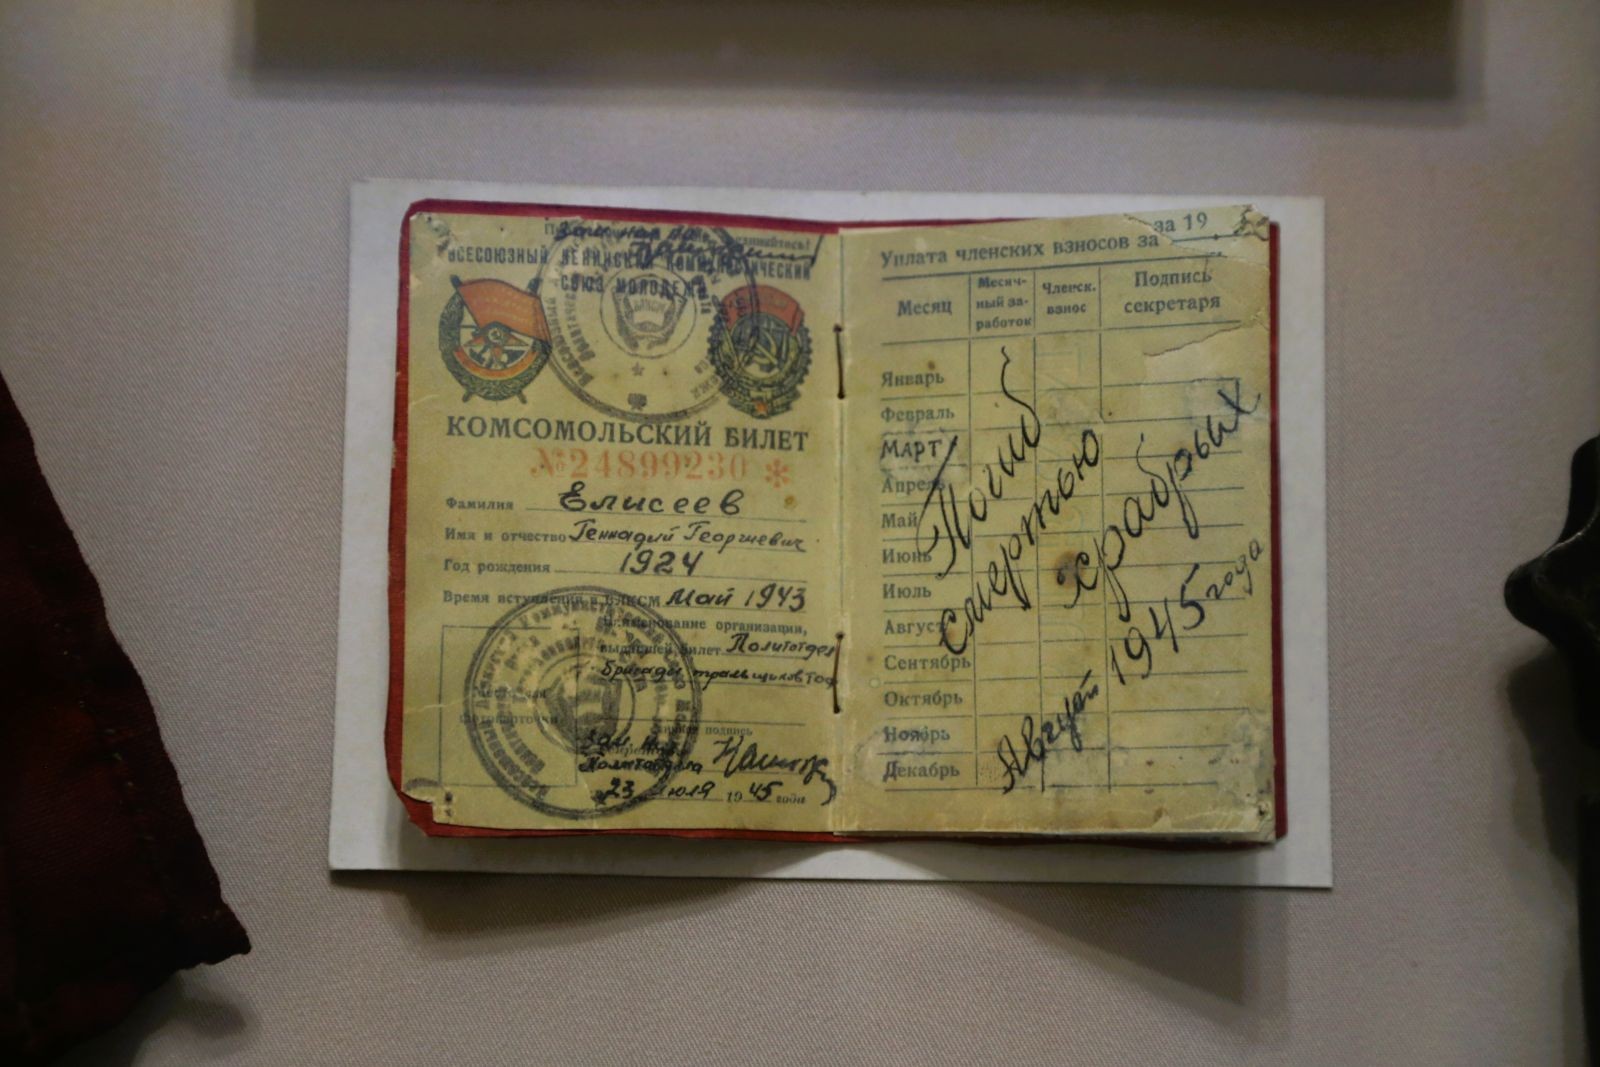 ВСЕСОЮЗНЫЙ ЛЕНИНСКИЙ КОММУНИСТИЧЕСКИЙ
СОЮЗ МОЛОДЕЖИ
КОМСОМОЛЬСКИЙ БИЛЕТ
№24899230 *
Фамилия Елисеев
Имя и отчество Геннадий Георгиевич
Год рождения 1924
Время вступления в ВЛКСМ Май 1943
Наименование организации,
выдавшей билет Политотдел
бригады тральщиков ТОФ
Личная подпись
Политотдела
23 июля 1945 года
за 19
Уплата членских взносов за
Месяц
Месяч-
ный за-
работок
Членск.
взнос
Подпись
секретаря
Январь
Февраль
МАРТ
Апрель
Май
Июнь
Июль
Август
Сентябрь
Октябрь
Ноябрь
Декабрь
Погиб
смертью
храбрых
Август 1945 года